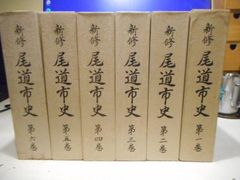 新修 尾道市史 第六巻
新修 尾道市史 第五巻
新修 尾道市史 第四巻
新修 尾道市史 第三巻
新修 尾道市史 第二巻
新修 尾道市史 第一巻